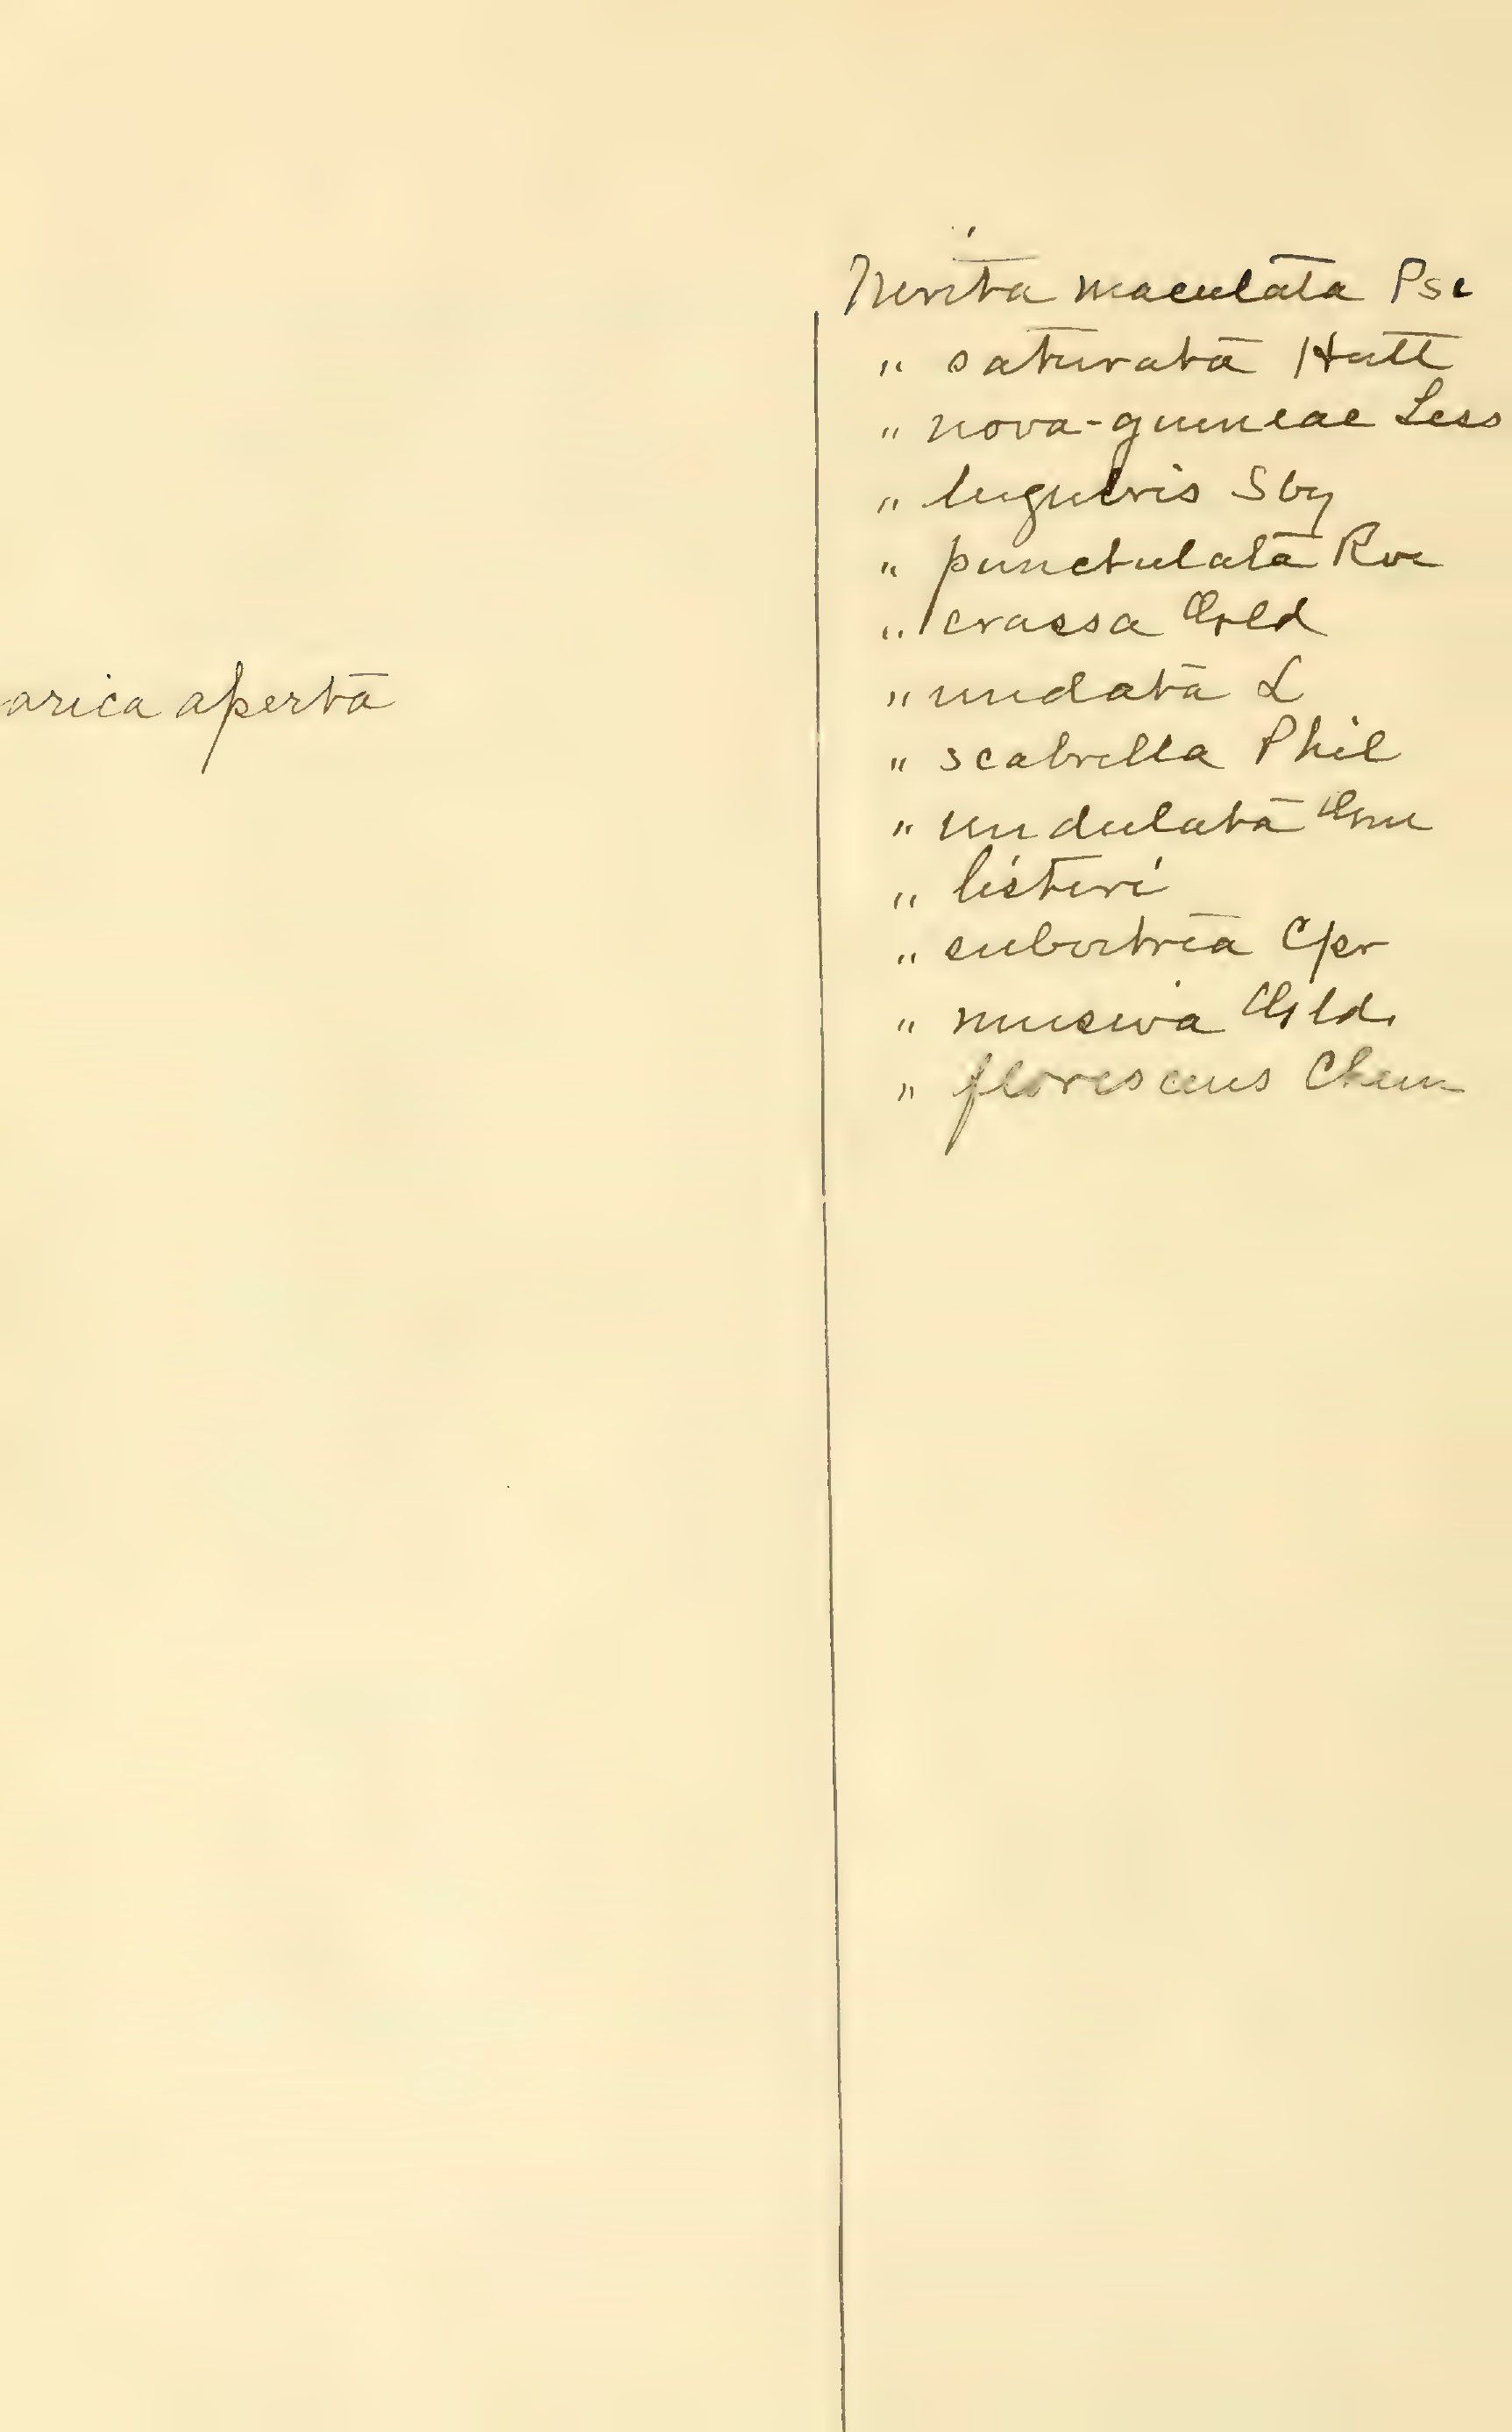 arica aperta
Nerita maculata Psc
" saturata Hutt
" nova-guineae Less
" lugubris Sby
" punctulata Rve
" crassa Gld
" undata L
" scabrella Phil
" undulata Gm
" listeri
" Cpr
" musiva Gld.
" florescens Chem